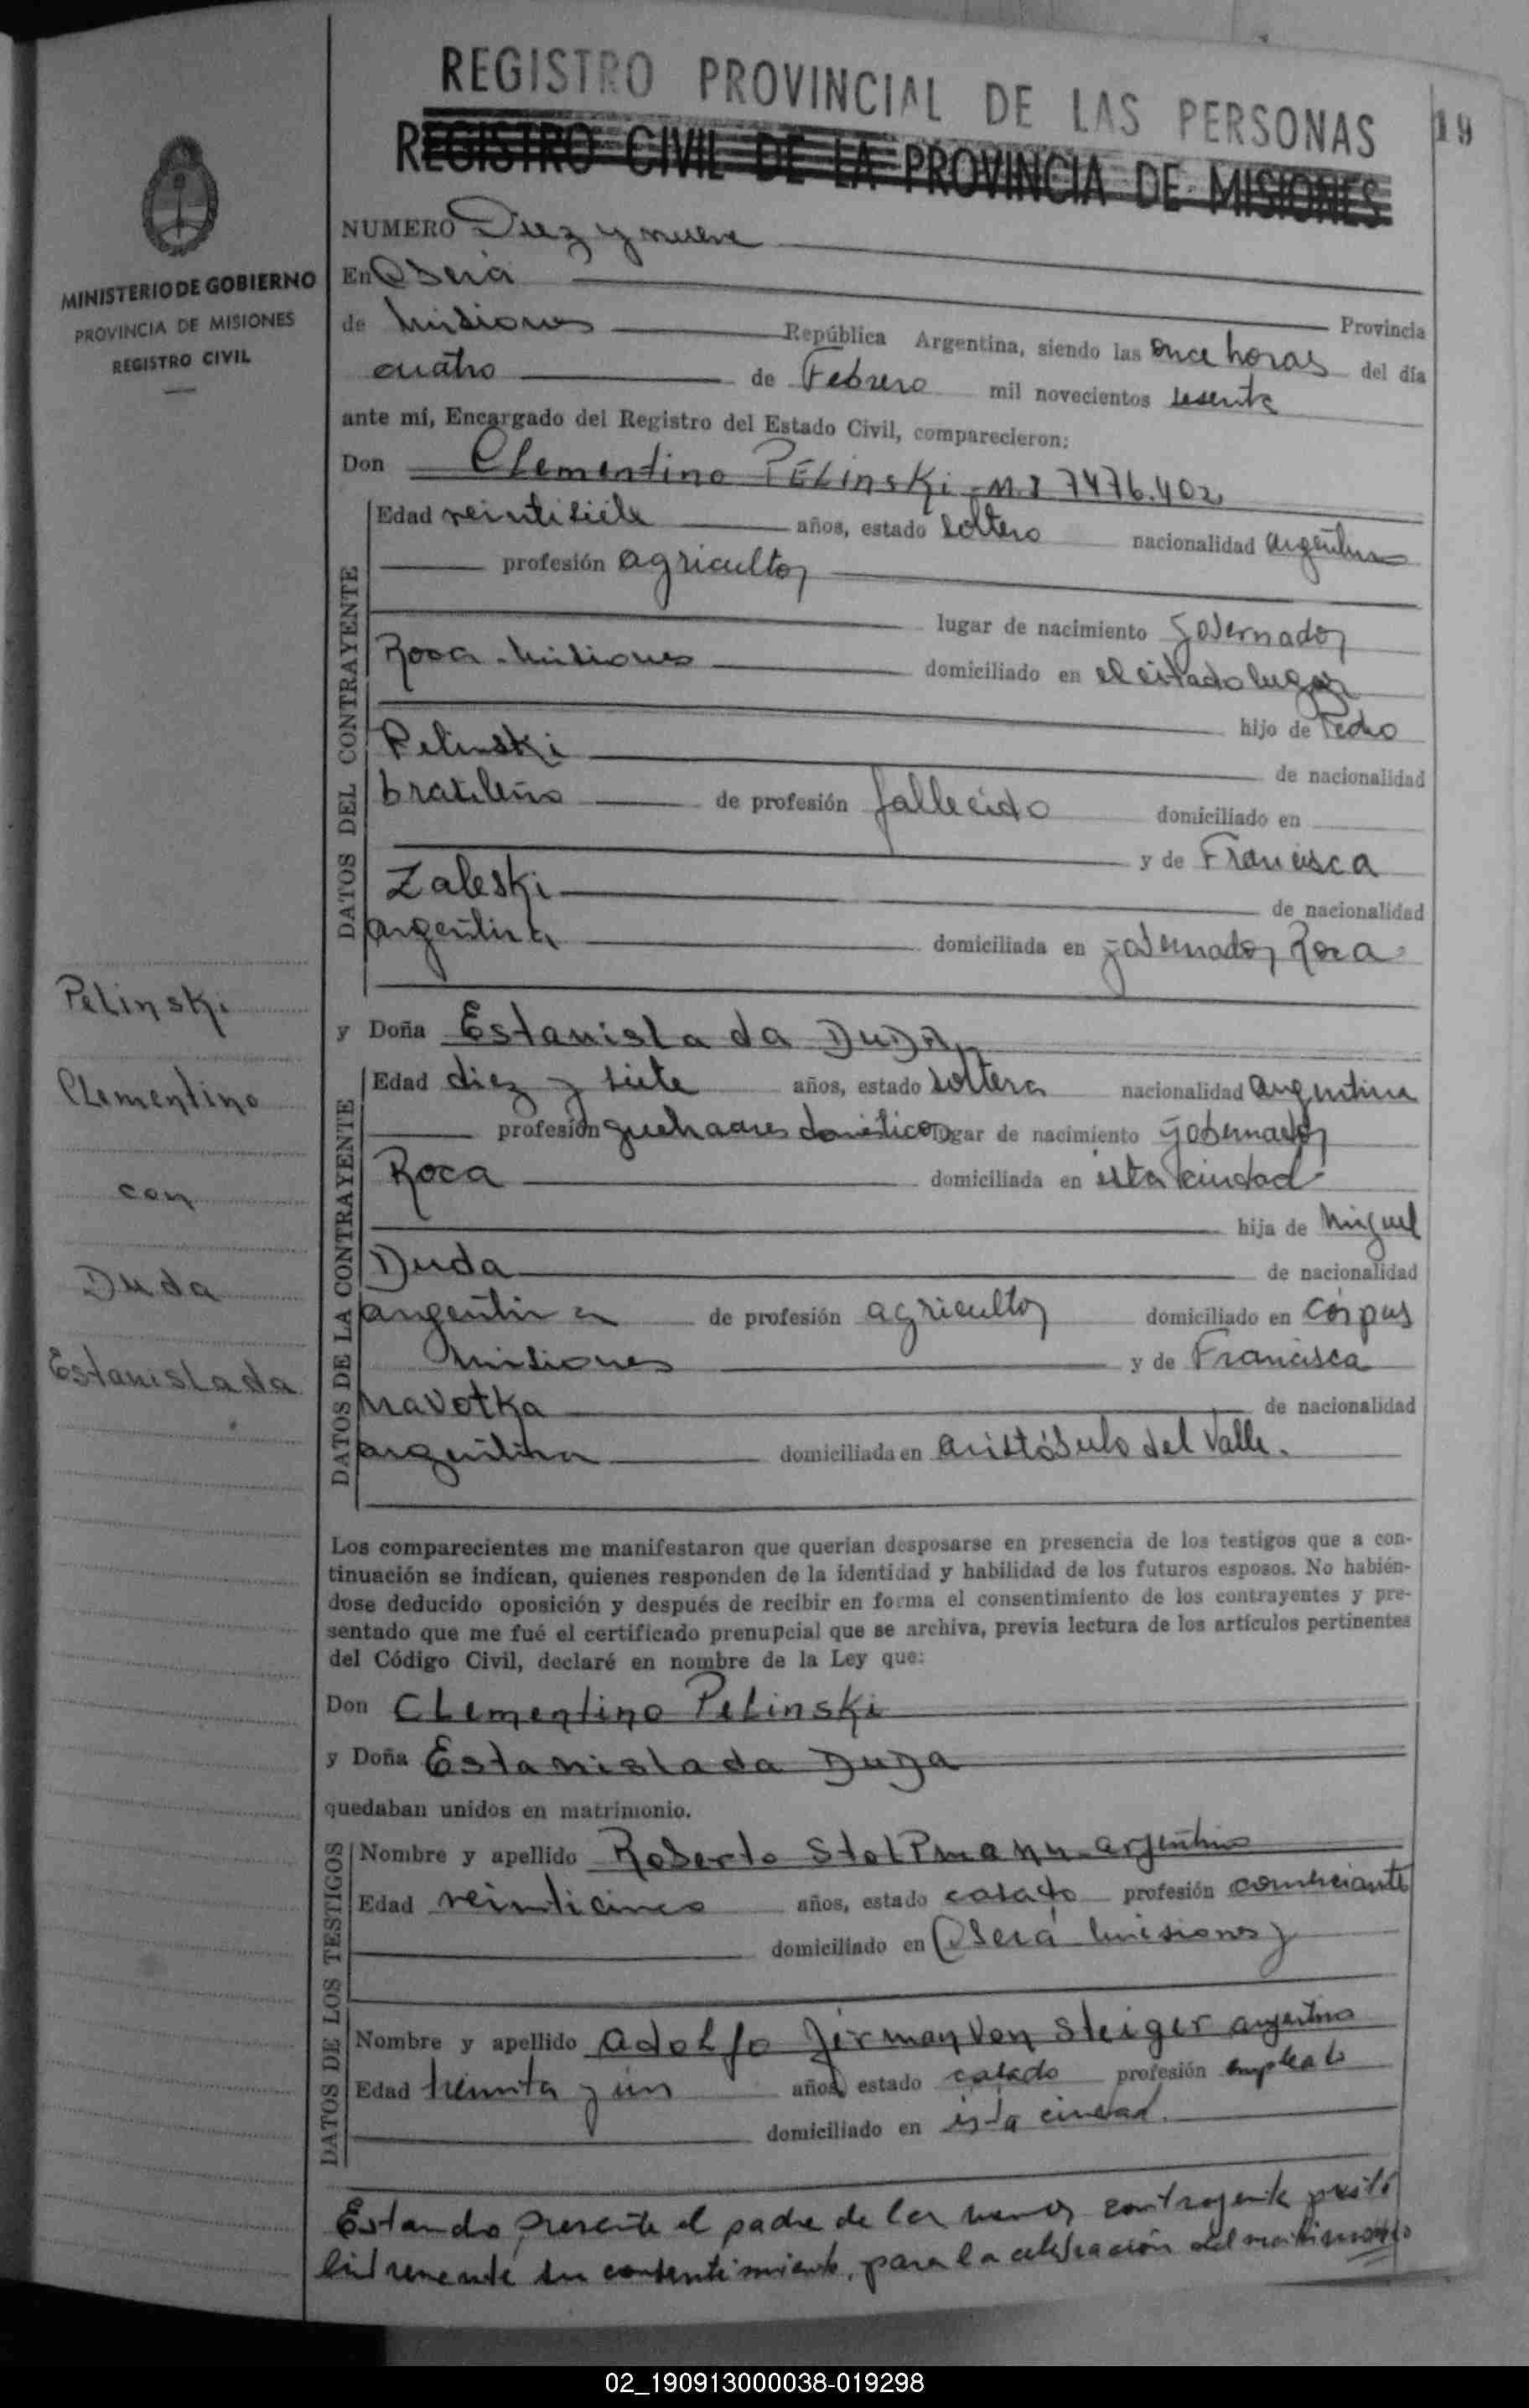 REGISTRO PROVINCIAL DE LAS PERSONAS
19
REGISTRO CIVIL DE LA PROVINCIA DE MISIONES
MINISTERIO DE GOBIERNO
PROVINCIA DE MISIONES
REGISTRO CIVIL
NUMERO Diez y nueve
En Oberá
Provincia
de Misiones República Argentina, siendo las once horas del día
cuatro de Febrero mil novecientos sesenta
ante mi, Encargado del Registro del Estado Civil, comparecieron:
Don Clementino PELinski - M.I 7476.402
DATOS DEL CONTRAYENTE
Edad veintisiete años, estado soltero nacionalidad argentino
profesión agricultor
lugar de nacimiento Gobernador
Roca - Misiones domiciliado en el citado lugar
hijo de Pedro
Pelinski
de nacionalidad
brasileño de profesión fallecido domiciliado en
y de Francisca
Zaleski
de nacionalidad
argentina domiciliada en gobernador Roca
y Doña Estanislada DUDA
DATOS DE LA CONTRAYENTE
Edad diez y siete años, estado soltera nacionalidad argentina
profesión quehaceres domésticos lugar de nacimiento gobernador
Roca domiciliada en ésta ciudad
hija de Miguel
Duda
de nacionalidad
argentina de profesión agricultor domiciliado en Córpus
Misiones y de Francisca
Mavotka
de nacionalidad
argentina domiciliada en aristóbulo del Valle.
Pelinski
Clementino
con
Duda
Estanislada
Los comparecientes me manifestaron que querían desposarse en presencia de los testigos que a con-
tinuación se indican, quienes responden de la identidad y habilidad de los futuros esposos. No habién-
dose deducido oposición y después de recibir en forma el consentimiento de los contrayentes y pre-
sentado que me fué el certificado prenupcial que se archiva, previa lectura de los artículos pertinentes
del Código Civil, declaré en nombre de la Ley que:
Don Clementino Pelinski
y Doña Estanislada Duda
quedaban unidos en matrimonio.
DATOS DE LOS TESTIGOS
Nombre y apellido Roberto Stolpmann - argentino
Edad veinticinco años, estado casado profesión comerciante
domiciliado en (Oberá Misiones)
Nombre y apellido adolfo Jerman Von Steiger argentino
Edad treinta y un años, estado casado profesión empleado
domiciliado en ésta ciudad.
Estando presente el padre de la menor contrayente prestó
libremente su consentimiento, para la celebración del matrimonio
02_190913000038-019298